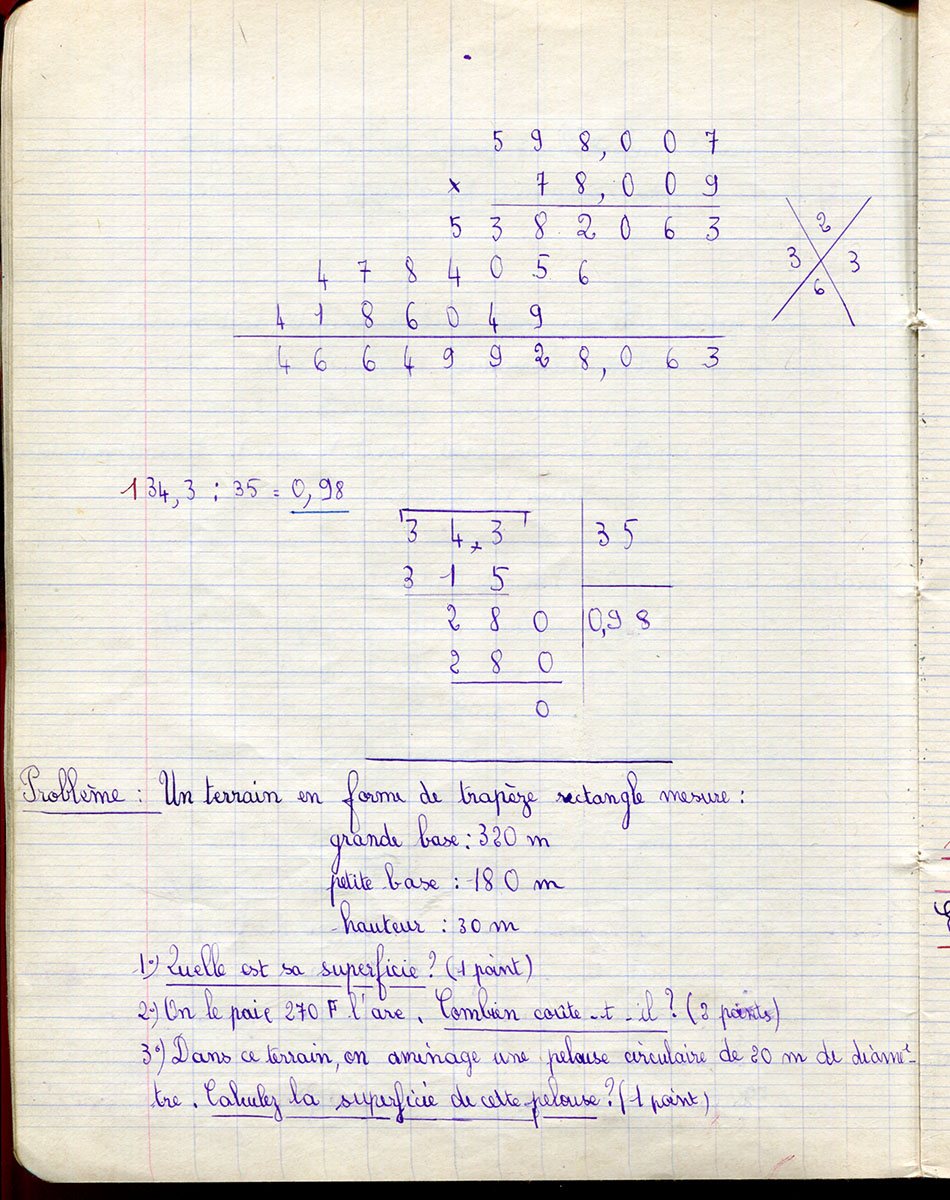 598,007
x 78,009
5382063
4784056
4186049
46649928,063
2
3 3
6
1 34,3 : 35 = 0,98
34,3 35
315
280 0,98
280
0
Problème : Un terrain en forme de trapèze rectangle mesure :
grande base : 320 m
petite base : 180 m
hauteur : 30 m
1°) Quelle est sa superficie ? (1 point)
2°) On le paie 270 F l'are. Combien coûte-t-il ? (3 points)
3°) Dans ce terrain, on aménage une pelouse circulaire de 20 m de diamè-
tre. Calculez la superficie de cette pelouse ? (1 point)